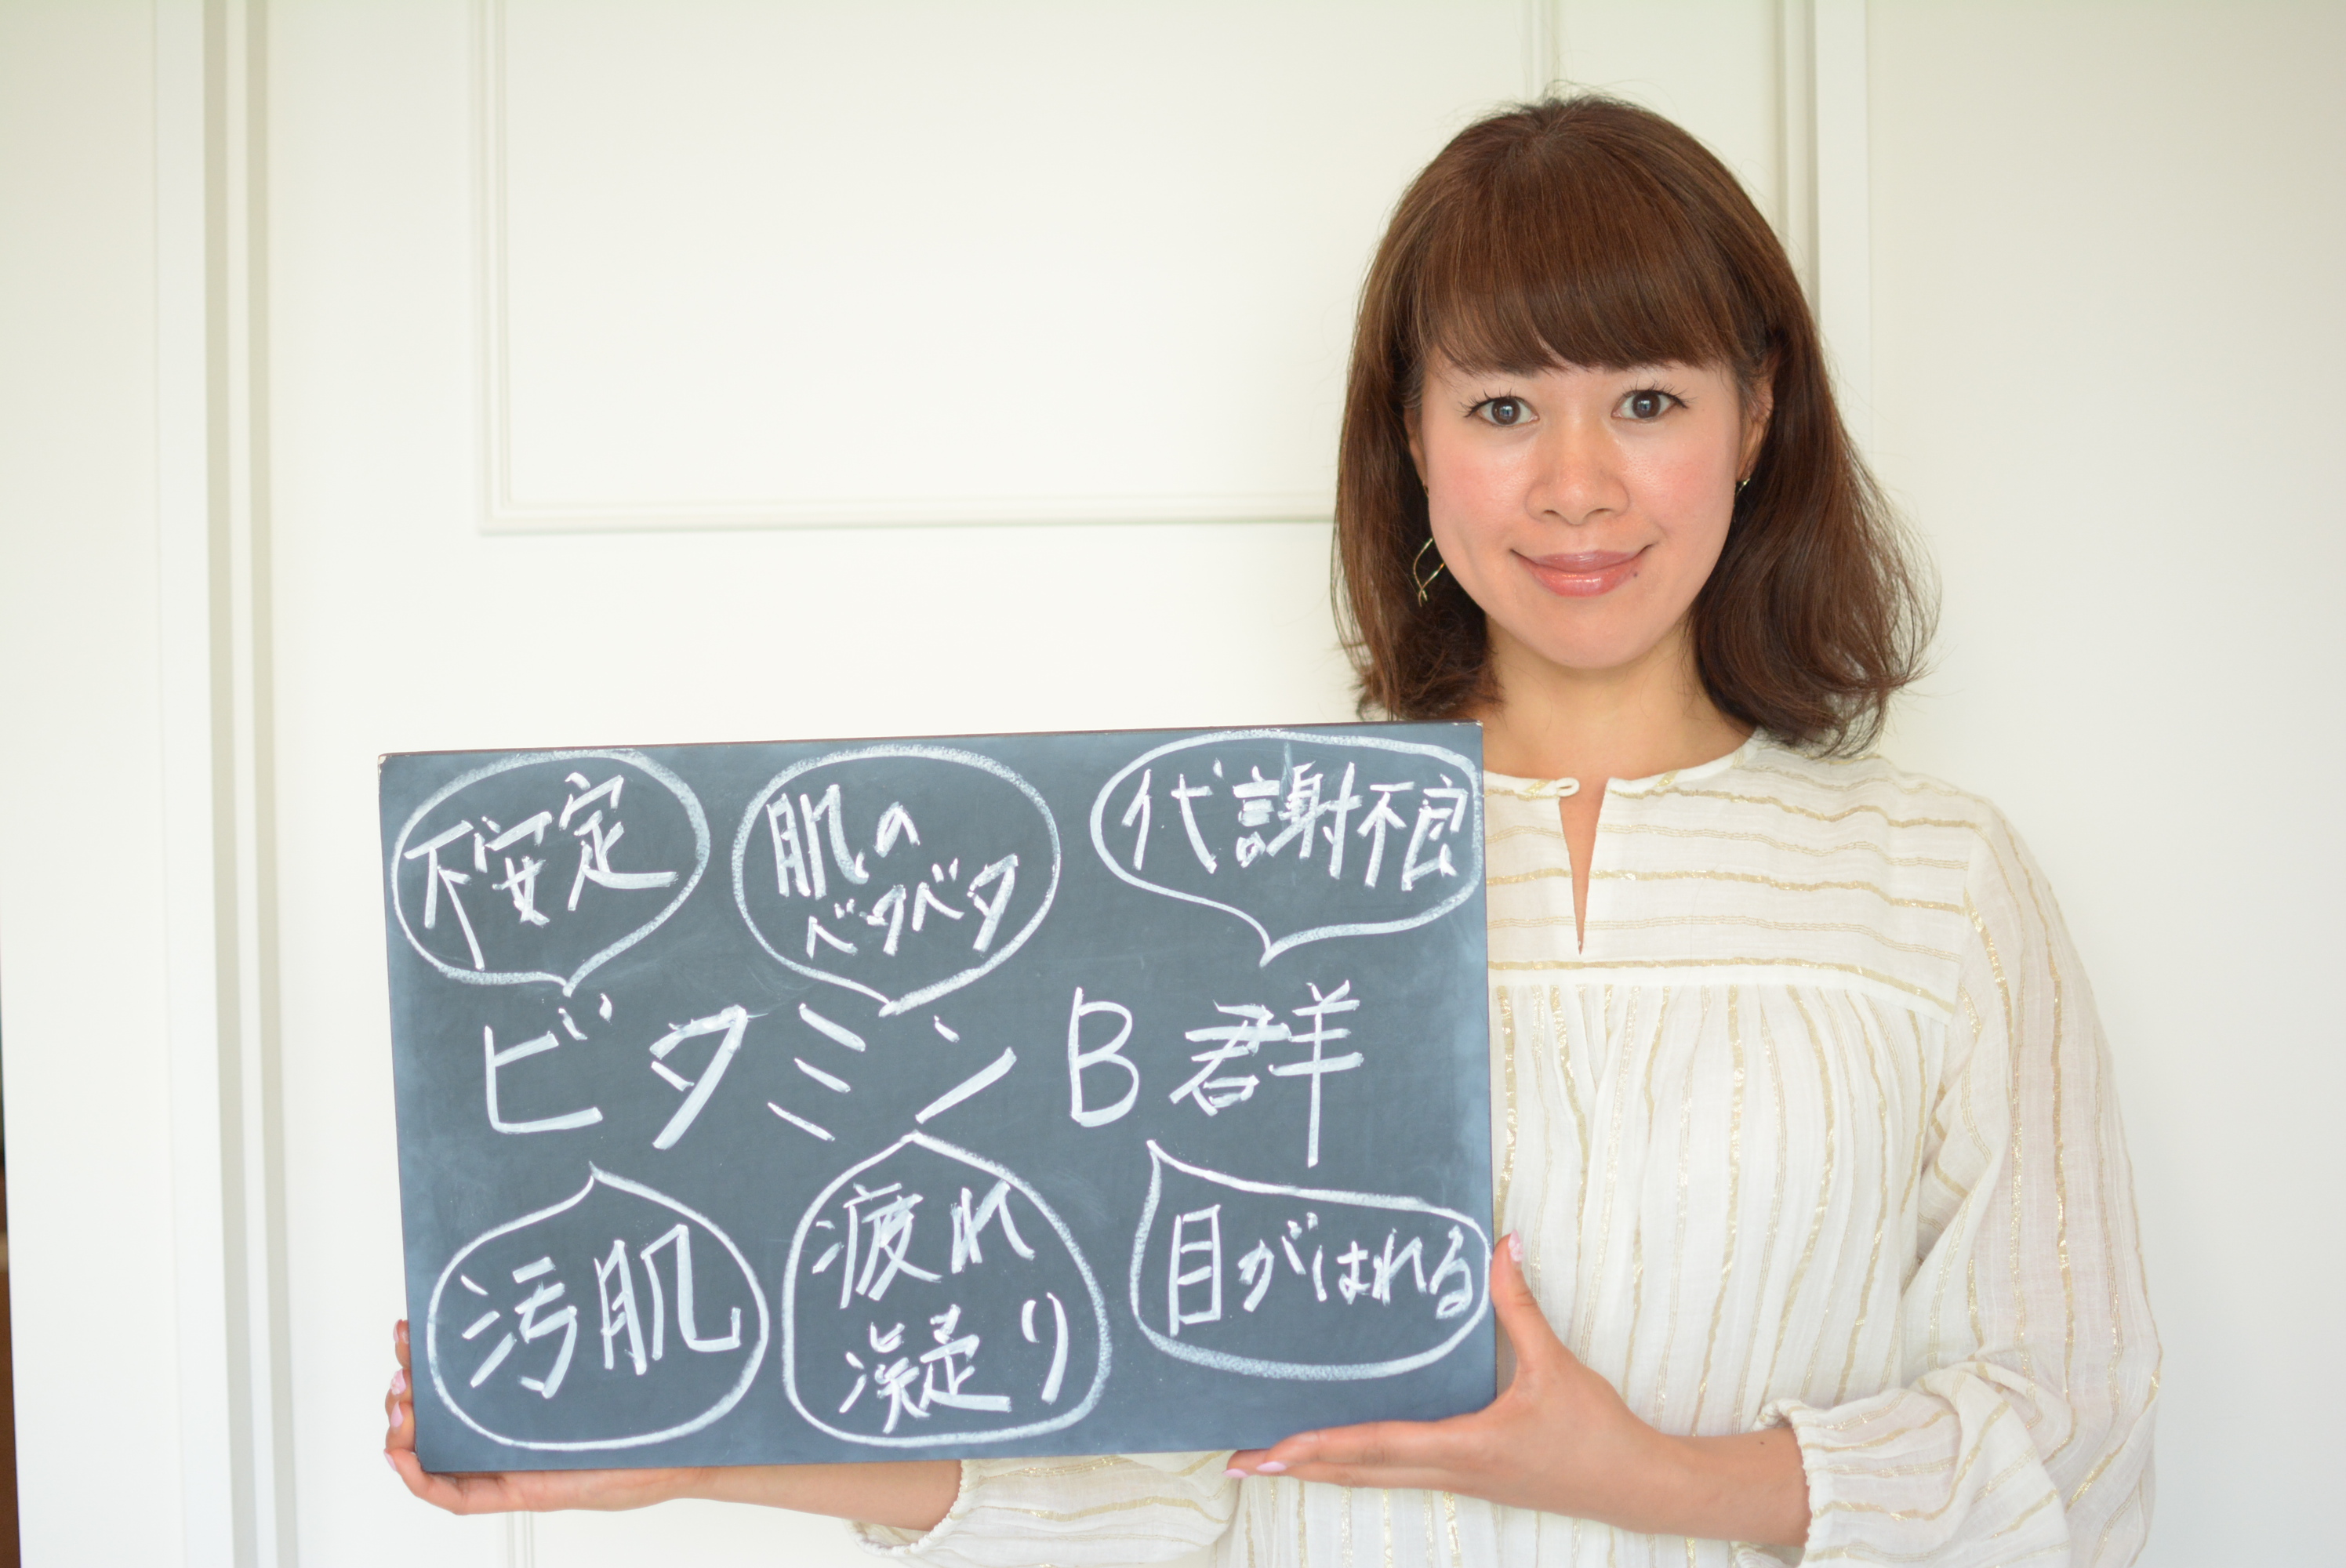 不安定
肌の
ベタベタ
代謝不良
ビタミンB群
汚肌
疲れ
凝り
目がはれる